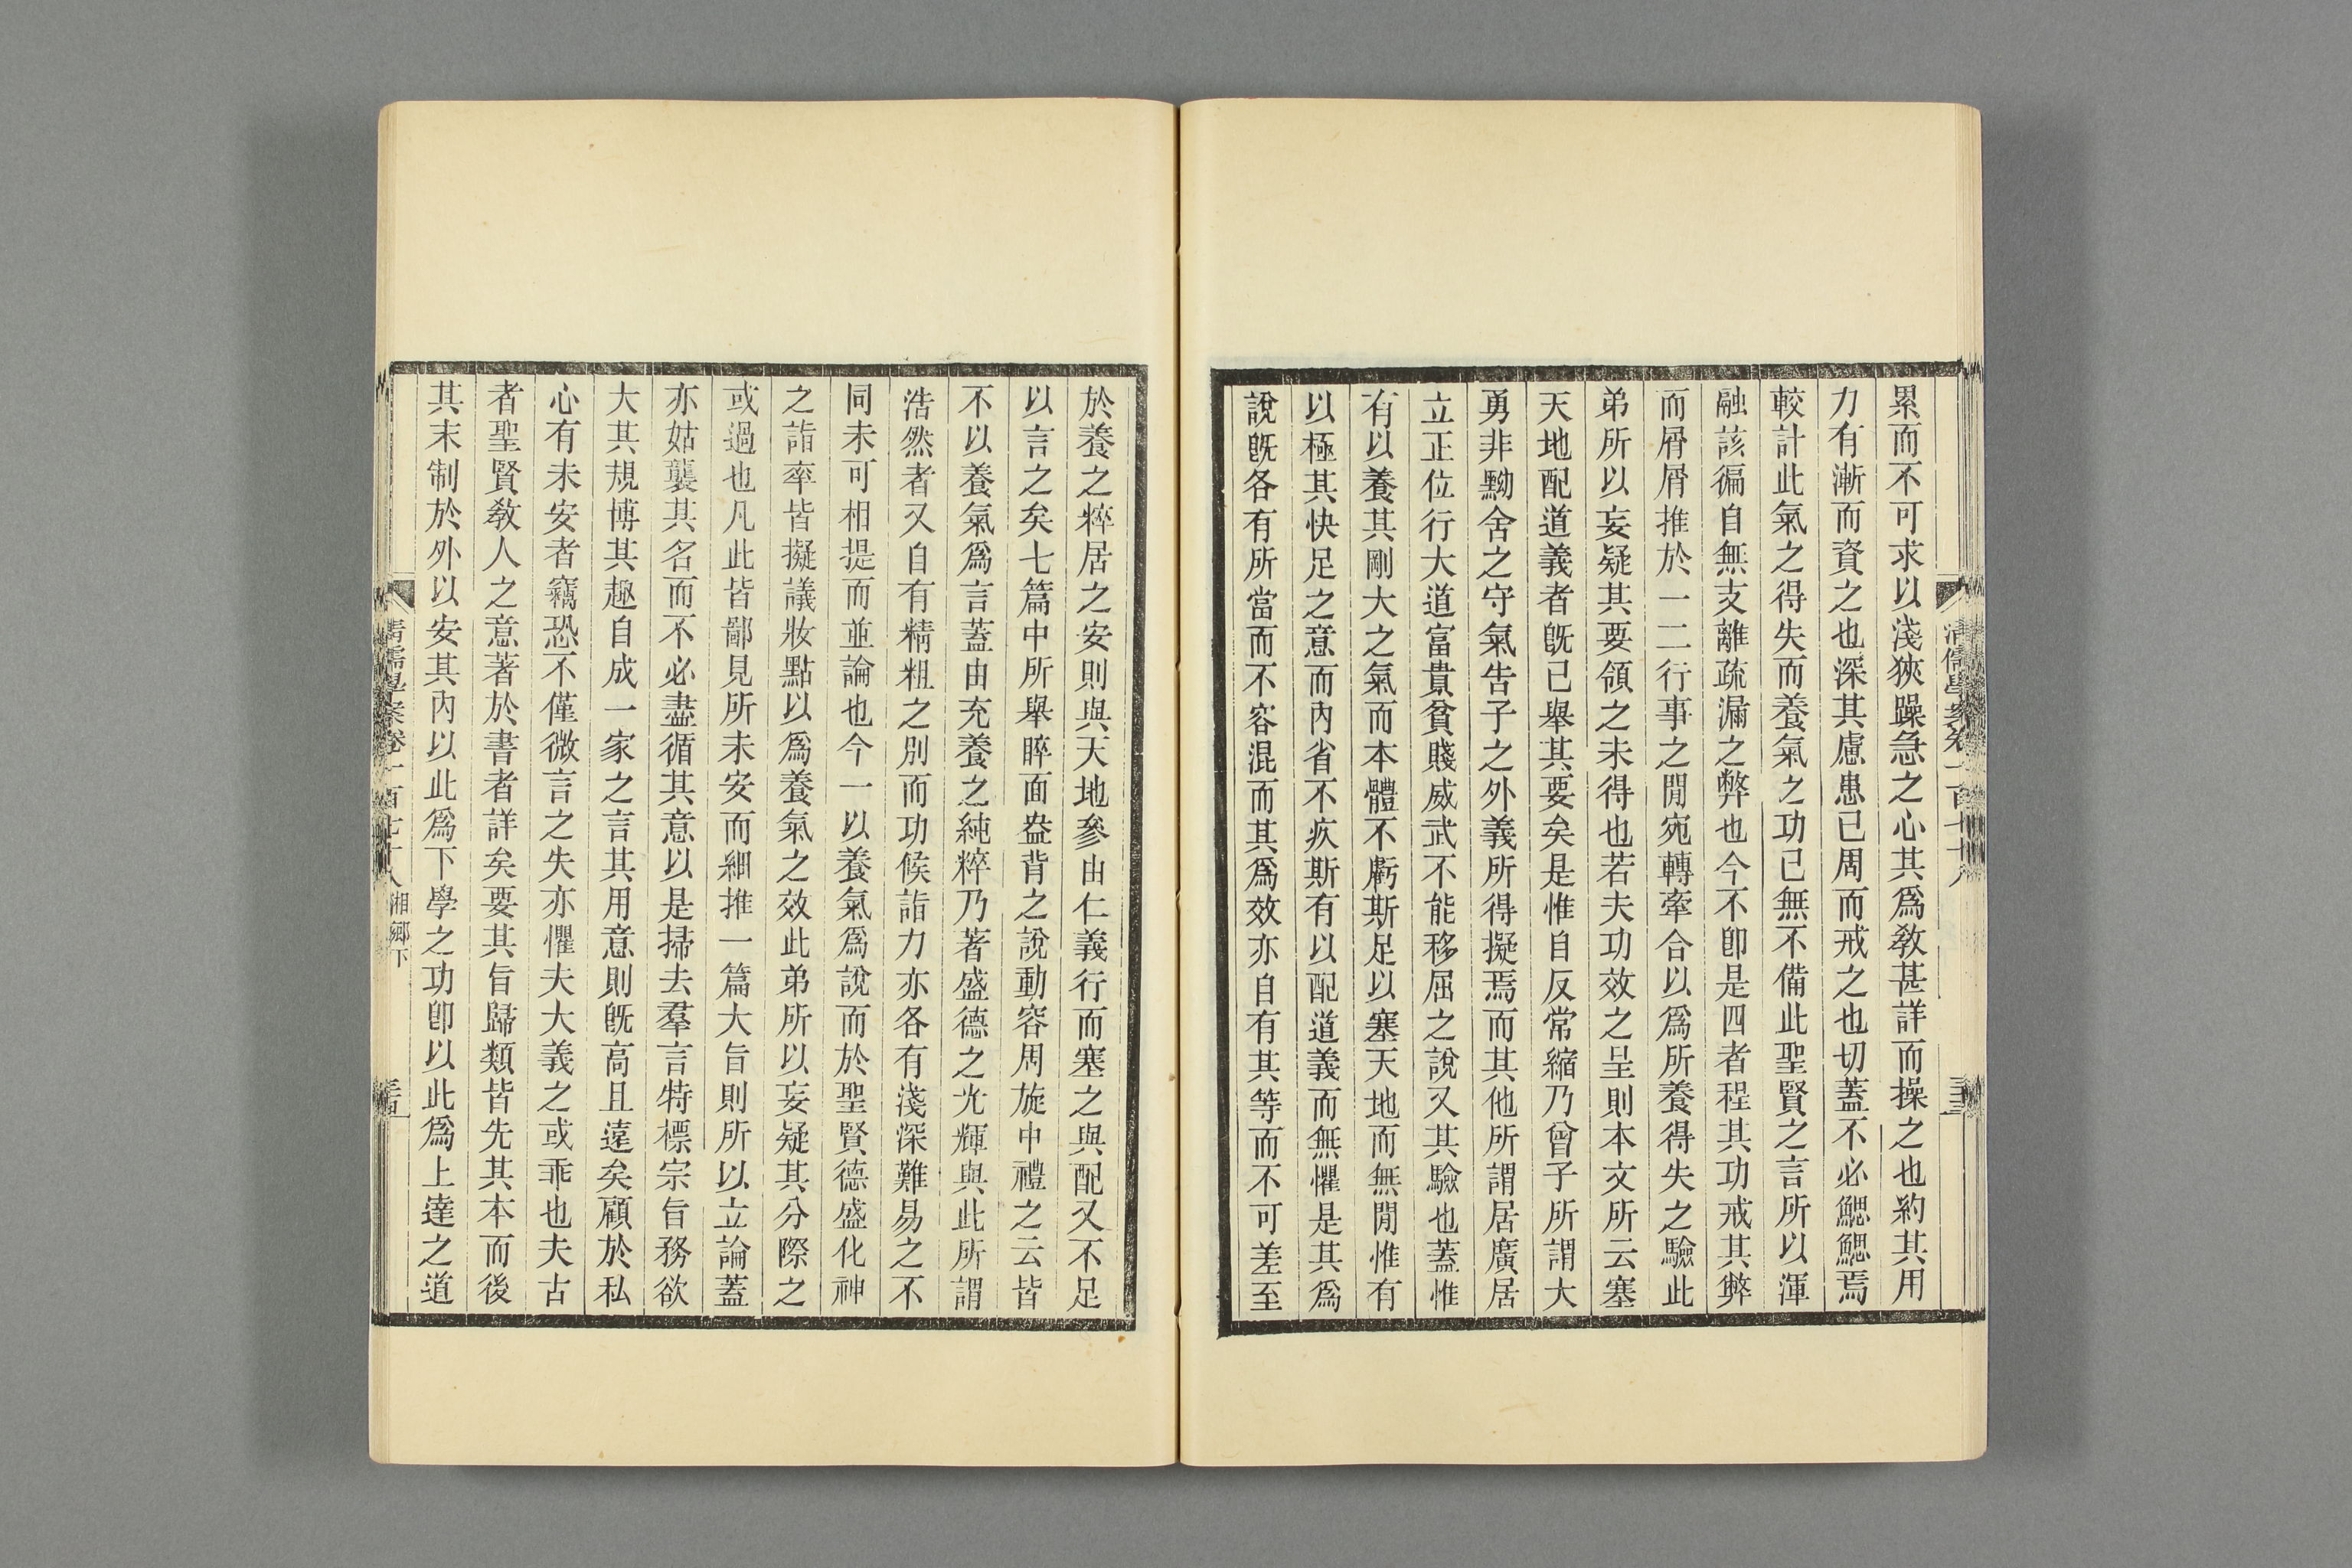 累而不可求以淺狹躁急之心其爲敎甚詳而操之也約其用
力有漸而資之也深其慮患已周而戒之也切蓋不必鰓鰓焉
較計此氣之得失而養氣之功已無不備此聖賢之言所以渾
融該徧自無支離疏漏之弊也今不卽是四者程其功戒其弊
而屑屑推於一二行事之閒宛轉牽合以爲所養得失之驗此
弟所以妄疑其要領之未得也若夫功效之呈則本文所云塞
天地配道義者旣已舉其要矣是惟自反常縮乃曾子所謂大
勇非黝舍之守氣告子之外義所得擬焉而其他所謂居廣居
立正位行大道富貴貧賤威武不能移屈之說又其驗也蓋惟
有以養其剛大之氣而本體不虧斯足以塞天地而無閒惟有
以極其快足之意而內省不疚斯有以配道義而無懼是其爲
說旣各有所當而不容混而其爲效亦自有其等而不可差至
於養之粹居之安則與天地參由仁義行而塞之與配又不足
以言之矣七篇中所舉睟面盎背之說動容周旋中禮之云皆
不以養氣爲言蓋由充養之純粹乃著盛德之光輝與此所謂
浩然者又自有精粗之別而功候詣力亦各有淺深難易之不
同未可相提而並論也今一以養氣爲說而於聖賢德盛化神
之詣率皆擬議妝點以爲養氣之效此弟所以妄疑其分際之
或過也凡此皆鄙見所未安而細推一篇大旨則所以立論蓋
亦姑襲其名而不必盡循其意以是掃去羣言特標宗旨務欲
大其規博其趣自成一家之言其用意則旣高且遠矣顧於私
心有未安者竊恐不僅微言之失亦懼夫大義之或乖也夫古
者聖賢敎人之意著於書者詳矣要其旨歸類皆先其本而後
其末制於外以安其內以此爲下學之功卽以此爲上達之道
清儒學案卷一百七十八 湘鄉下